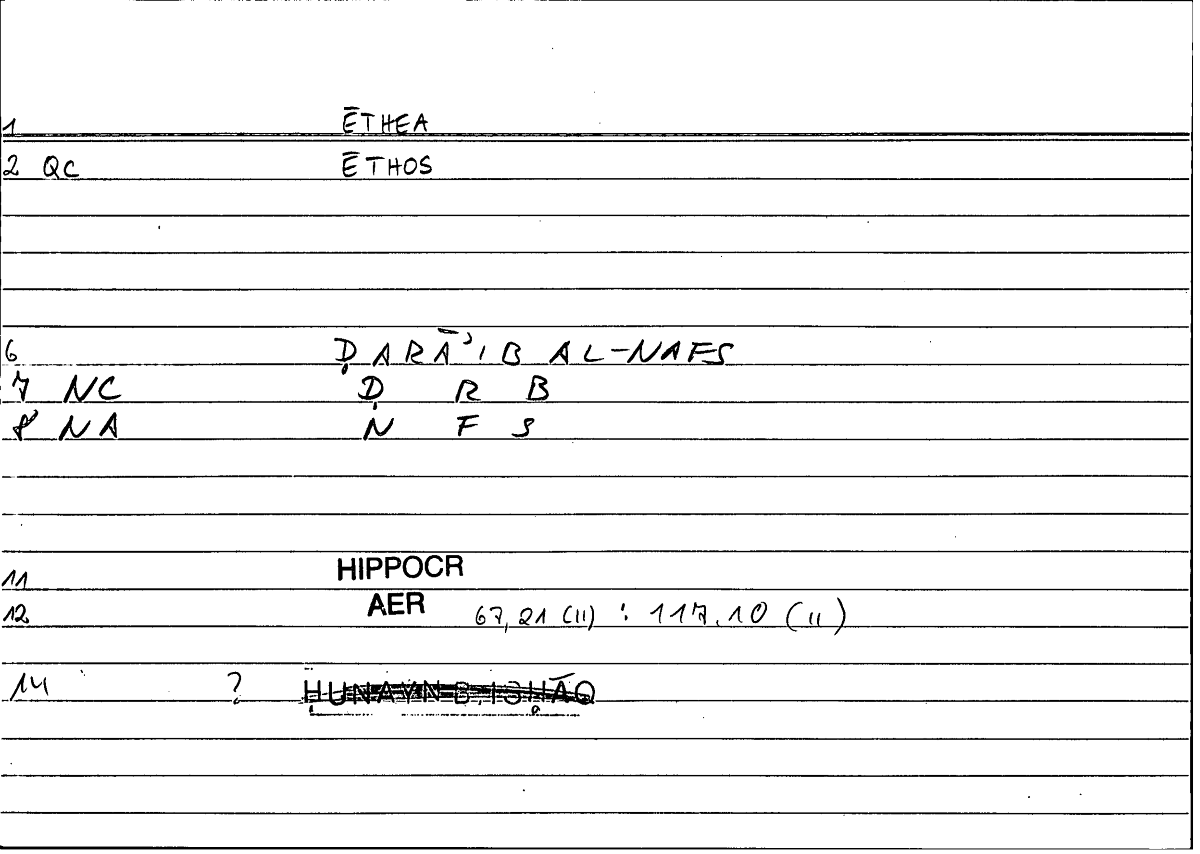 1 ĒTHEA
2 QC ĒTHOS
6 ḌARĀʾIB AL-NAFS
7 NC Ḍ R B
8 NA N F S
11 HIPPOCR
12 AER 67,21 (11) : 117.10 (11)
14 ? ḤUNAYN B. ISḤĀQ